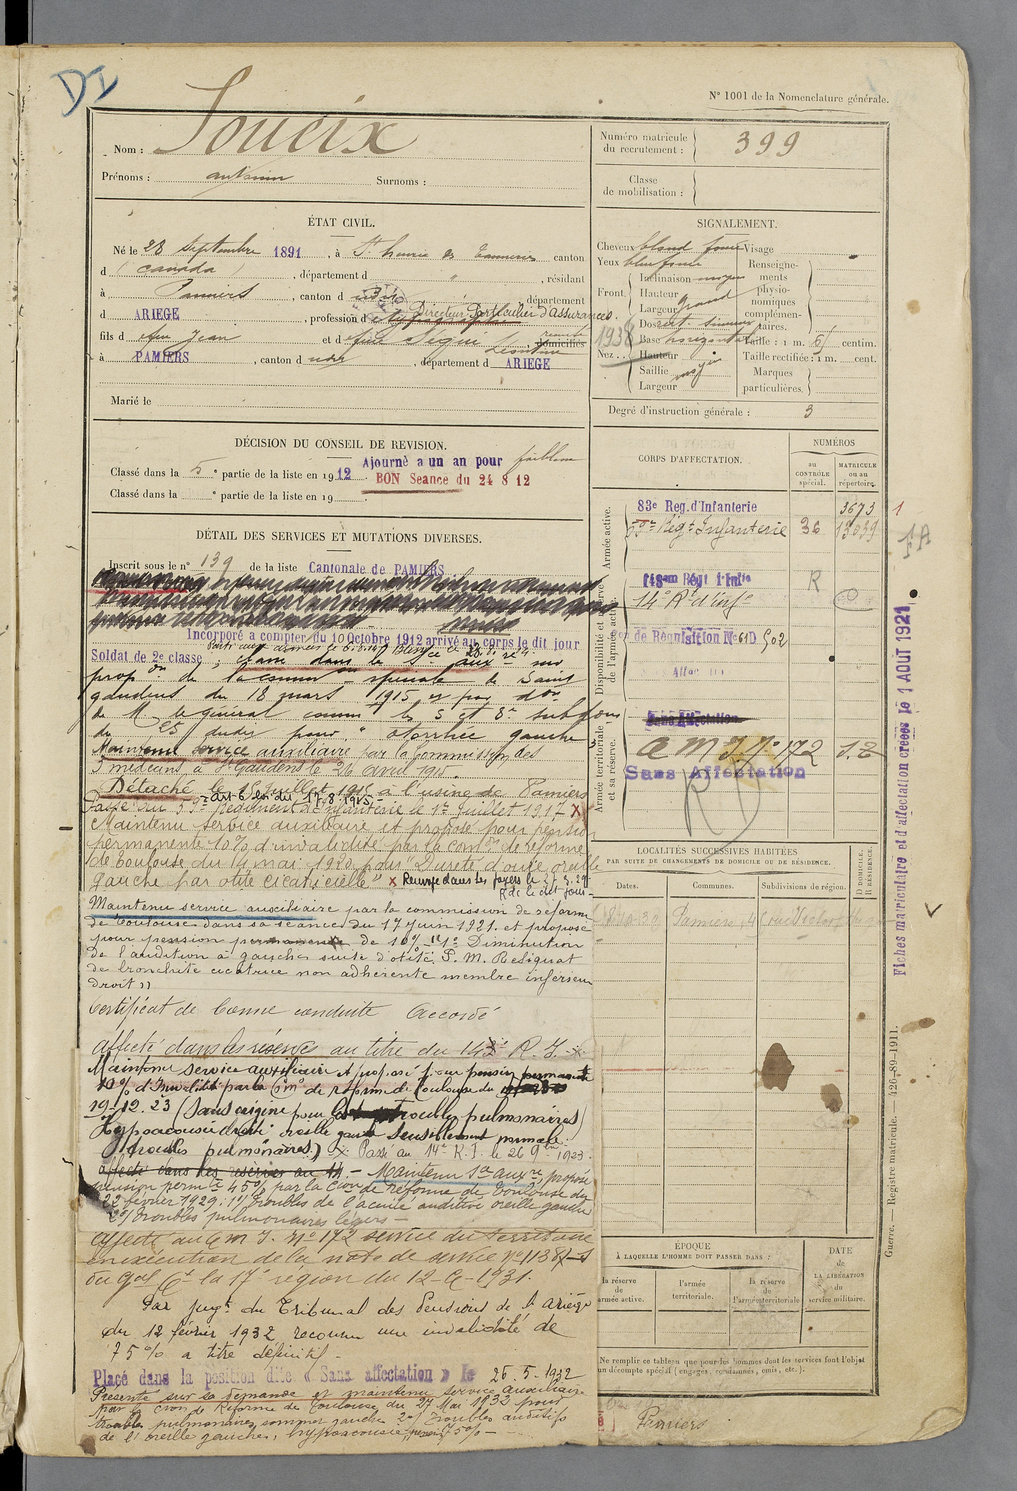 DI
N° 1001 de la Nomenclature générale.
Nom : Soueix
Prénoms : antonin Surnoms :
Numéro matricule du recrutement : 399
Classe de mobilisation :
ÉTAT CIVIL.
Né le 28 Septembre 1891, à St henri des Tanneries canton
d (Canada), département d " , résidant
à Pamiers, canton d udit, département
d ARIEGE, profession d Directeur Particulier d'assurances
fils d feu Jean et d feue Ségui Léontine, domiciliés
à PAMIERS, canton d udit, département d ARIEGE
Marié le
SIGNALEMENT.
Cheveux blond foncé Visage
Yeux bleu foncé
Front. Inclinaison moyen
Hauteur
Largeur grand
Nez. Dos rect. sinueux
Base horizontal
Hauteur
Saillie moyen
Largeur
1938
Renseignements physionomiques complémentaires.
Taille : 1 m. 61 centim.
Taille rectifiée : 1 m. cent.
Marques particulières.
Degré d'instruction générale : 3
DÉCISION DU CONSEIL DE REVISION.
Classé dans la 5e partie de la liste en 1912 Ajourné a un an pour faiblesse
BON Seance du 24 8 12
Classé dans la e partie de la liste en 19
DÉTAIL DES SERVICES ET MUTATIONS DIVERSES.
Inscrit sous le n° 139 de la liste Cantonale de PAMIERS
Incorporé a compter du 10 Octobre 1912 arrivé au corps le dit jour
Soldat de 2e classe ; classé dans le Sce aux sur
propon de la common spéciale de Saint
gaudens du 18 mars 1915, et par don
de M le général commt les 5 et 8e subdons
du dudit pour "otorrhée gauche"
Maintenu service auxiliaire par la Commission des
3 médecins à St Gaudens le 26 avril 1915.
Détaché le 1er juillet 1916 à l'usine de Pamiers
art 6 loi du 17.8.1915
Passé au Régiment d'Infanterie le 1er Juillet 1917 X
Maintenu service auxiliaire et proposé pour pension
permanente 10% d'invalidité par la comon de réforme
de Toulouse du 14 mai 1920 pour "Dureté d'ouïe oreille
gauche par otite cicatricielle" X Renvoyé dans ses foyers le
R de le dit jour
Maintenu service auxiliaire par la commission de réforme
de Toulouse dans sa séance du 17 juin 1921. et proposé
pour pension permanente de 10% 1° Diminution
de l'audition à gauche suite d'otite P. M. Reliquat
de bronchite cicatrice non adhérente membre inférieur
droit"
Certificat de bonne conduite Accordé
Affecté dans la réserve au titre du 143e R. I.
Maintenu service auxiliaire et proposé pour pension permanente
10% d'Invalidité par la Con de réforme de Toulouse du
19-12.23 (Sans origine pour troubles pulmonaires)
Hypoacousie droite oreille gauche sensiblement normale.
(troubles pulmonaires) X Passé au 14e R. I. le 26 9bre 1923.
affecté dans les réserves au 14 - Maintenu Sce auxre, proposé
pension permte 45% par la Con de réforme de Toulouse du
22 février 1929 : 1°) Troubles de l'acuité auditive oreille gauche
2°) Troubles pulmonaires légers -
Affecté au C M I. N° 172 service du territoire
en exécution de la note de service N° 11387-S
du Gal Ct la 17e région du 12-9-1931.
Par jugt du Tribunal des Pensions de l'Ariège
du 12 février 1932 reconnu une invalidité de
75% à titre définitif -
Placé dans la position dite « Sans affectation » le 26-5-1932
Présenté sur sa demande et maintenu service auxiliaire
par la Cion de Réforme de Toulouse du 27 Mai 1933 pour
troubles pulmonaires, sommet gauche 2°) troubles auditifs
de l'oreille gauche, hypoacousie, pension 75% -
CORPS D'AFFECTATION.
NUMÉROS
au CONTRÔLE spécial.
MATRICULE ou au répertoire.
Armée active.
83e Reg. d'Infanterie 3673
59e Régt Infanterie 36 13039
Disponibilité et réserve de l'armée active.
143em Régt d'Infie R
14e Rt d'infie
de Réquisition N° 61D 502
Armée territoriale et sa réserve.
Sans Affectation
C M I N° 172 S.T
Sans Affectation
LOCALITÉS SUCCESSIVES HABITÉES
PAR SUITE DE CHANGEMENTS DE DOMICILE OU DE RÉSIDENCE.
Dates. Communes. Subdivisions de région.
D. DOMICILE. R. RÉSIDENCE.
Pamiers, 4
ÉPOQUE
À LAQUELLE L'HOMME DOIT PASSER DANS :
la réserve de l'armée active.
l'armée territoriale.
la réserve de l'armée territoriale.
DATE de LA LIBÉRATION du service militaire.
Ne remplir ce tableau que pour les hommes dont les services font l'objet
d'un décompte spécial (engagés, condamnés, omis, etc.).
Pamiers
Fiches matriculaire et d'affectation créées le 1 AOUT 1921
Guerre. — Registre matricule. — 426-89-1911.